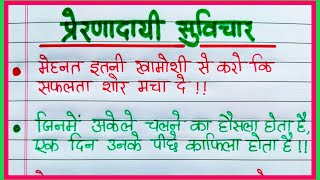 प्रेरणादायी सुविचार
मेहनत इतनी खामोशी से करो कि
सफलता शोर मचा दे !!
जिनमें अकेले चलने का हौसला होता है,
एक दिन उनके पीछे काफिला होता है !!